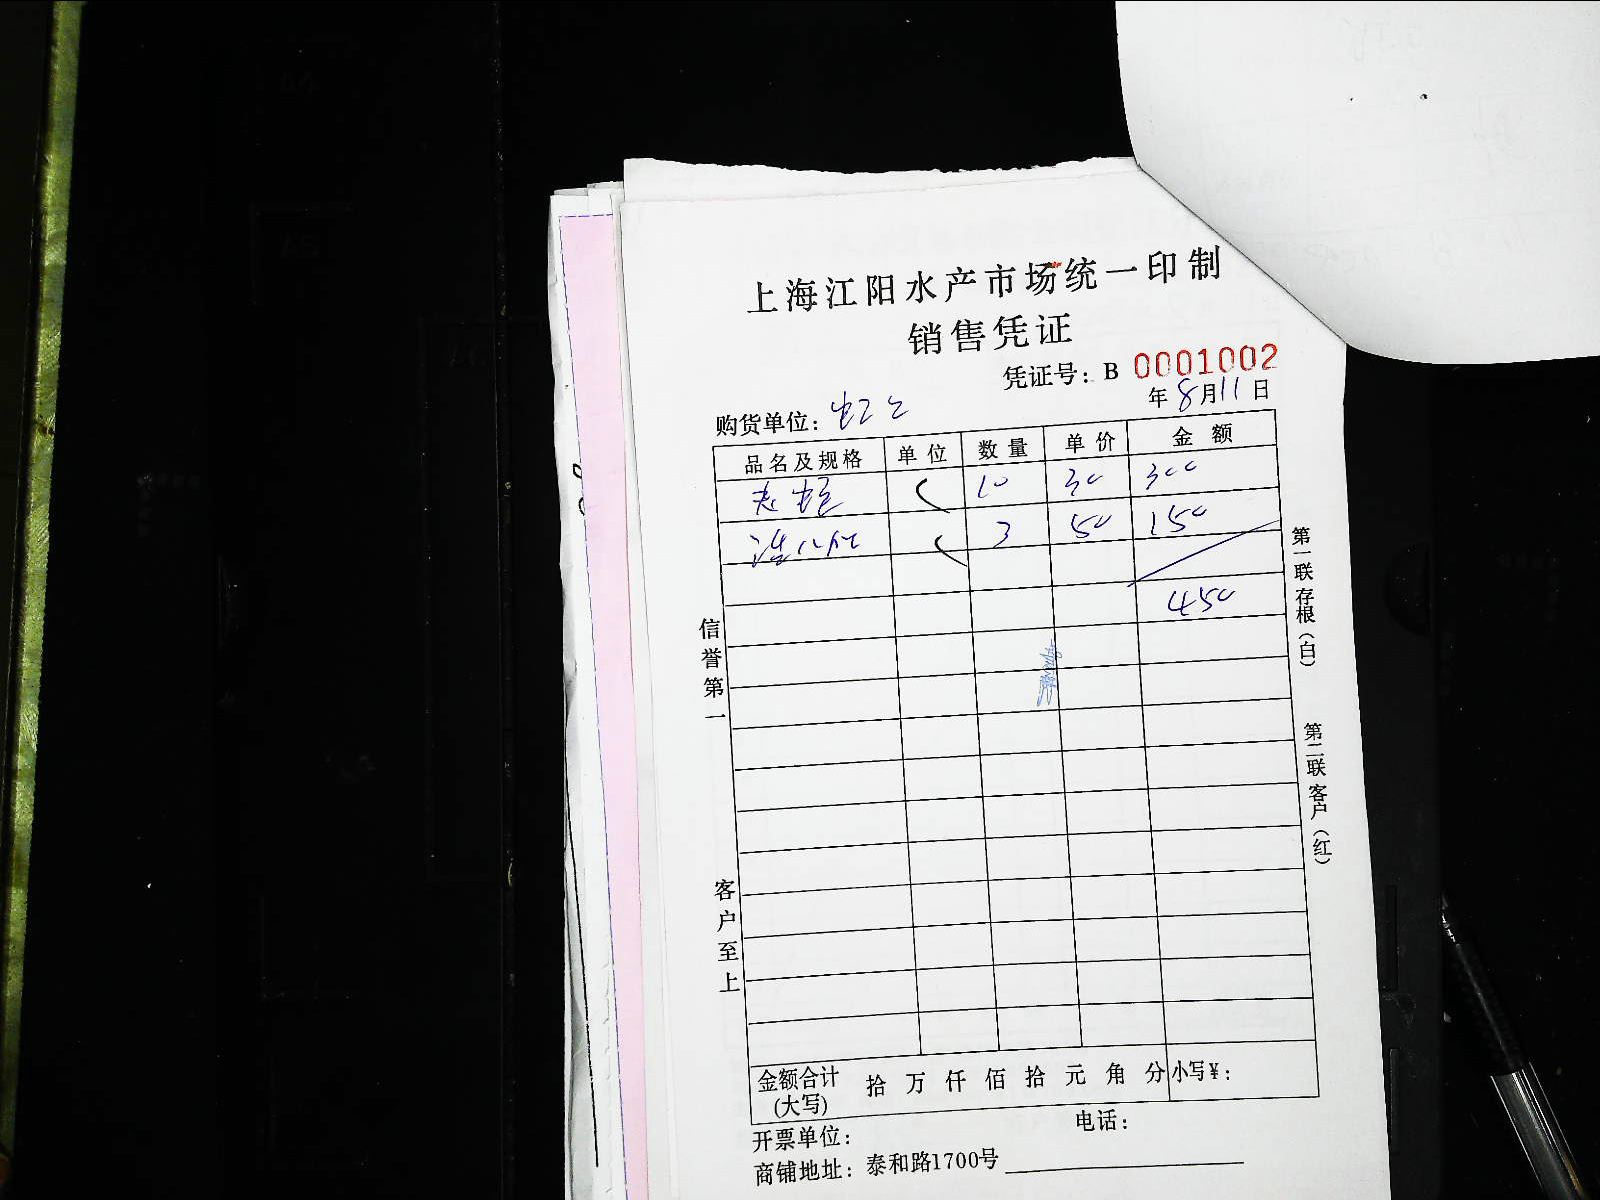 上海江阳水产市场统一印制
销售凭证
凭证号：B 0001002
年8月11日
购货单位：
品名及规格 单位 数量 单价 金额
10 30 300
3 50 150
450
信誉第一
客户至上
第一联存根（白）
第二联客户（红）
金额合计(大写) 拾 万 仟 佰 拾 元 角 分 小写¥：
开票单位： 电话：
商铺地址：泰和路1700号